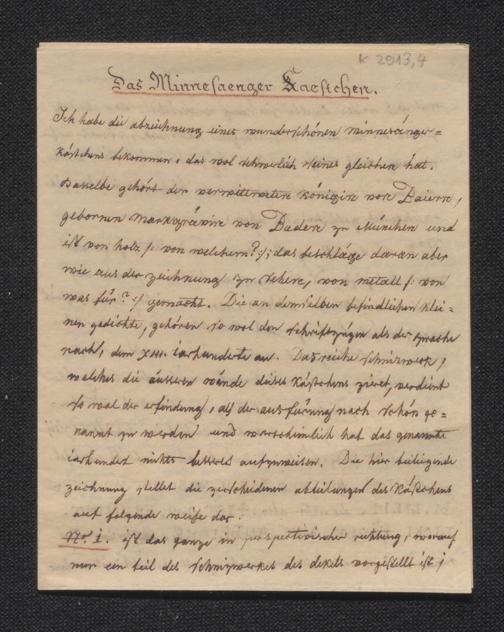 K 2913,4
Das Minnesaenger Kaestchen.
Ich habe die abzeichnung eines wunderschönen minnesänger=
kästchens bekommen, das wol schwerlich seines gleichen hat.
Dasselbe gehört der verwittweten königin von Baiern,
gebornen markgrävin von Baden zu München und
ist von holz /: von welchem? :/; das beschläge daran aber
wie aus der zeichnung zu sehen, von metall /: von
was für? :/ gemacht. Die an demselben befindlichen klei=
nen gedichte, gehören so wol den schriftzügen als der sprache
nach, dem XIII. iarhunderte an. Das reiche schnizwerk,
welches die äussern wände dieses kästchens zieret, verdient
so wol der erfindung, als der ausfürung nach schön ge=
nannt zu werden und warscheinlich hat das genannte
iarhundert nichts besseres aufzuweisen. Die hier beiliegende
zeichnung stellet die verschiedenen abteilungen des kästchens
auf folgende weise dar.
No. 1. ist das ganze in perspectivischer richtung, worauf
nur ein teil des schnizwerkes des dekels vorgestellt ist;